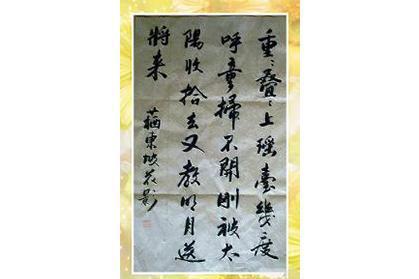 重〻叠〻上瑶臺幾度
呼童掃不開剛被太
陽收拾去又教明月送
將来
蘓東坡花影